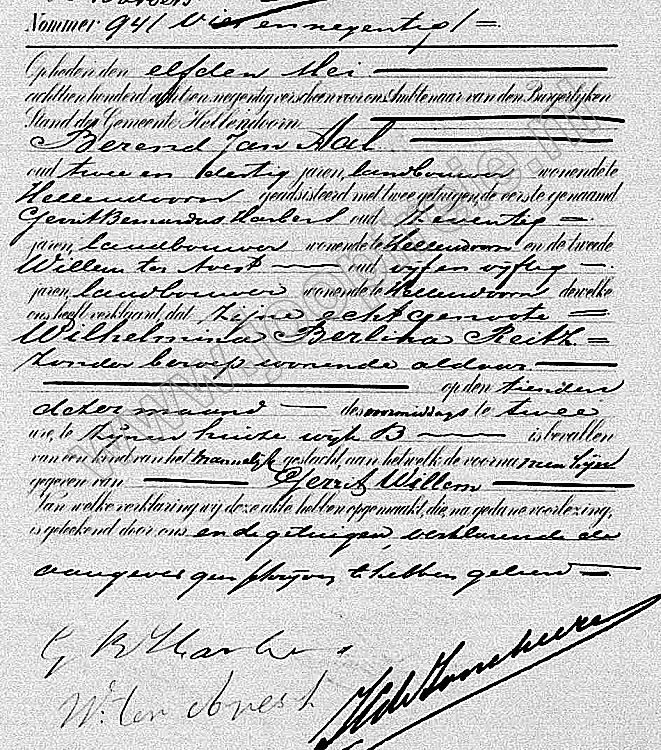 Nommer 94 / Vier en negentig / =
Op heden den elfden Mei
achttien honderd acht en negentig verscheen voor ons Ambtenaar van den Burgerlijken
Stand der Gemeente Hellendoorn
Berend Jan Aal
oud twee en dertig jaren, landbouwer wonende te
Hellendoorn geadsisteerd met twee getuigen, de eerste genaamd
Gerrit Bernardus Harbers oud zeventig =
jaren, landbouwer wonende te Hellendoorn en de tweede
Willem ten oud vijf en vijftig
jaren, landbouwer wonende te Hellendoorn dewelke
ons heeft verklaard, dat zijne echtgenoote =
Wilhelmina Berlina =
zonder beroep wonende aldaar
op den tienden
dezer maand des voormiddags te twee
ure, te zijnen huize wijk B is bevallen
van een kind van het mannelijk geslacht, aan hetwelk de voornamen zijn
gegeven van Gerrit Willem
Van welke verklaring wij deze akte hebben opgemaakt, die, na gedane voorlezing,
is geteekend door ons en de getuigen, verklarende de
aangever geen schrijven te hebben geleerd =
G B Harbers
W. ten